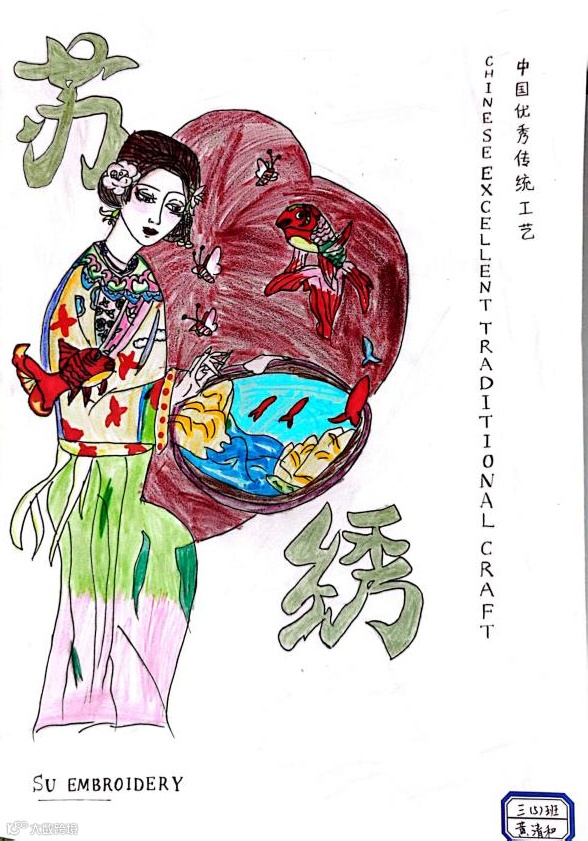 苏
绣
中国优秀传统工艺
CHINESE EXCELLENT TRADITIONAL CRAFT
SU EMBROIDERY
三(5)班
黄清和
大成跨境